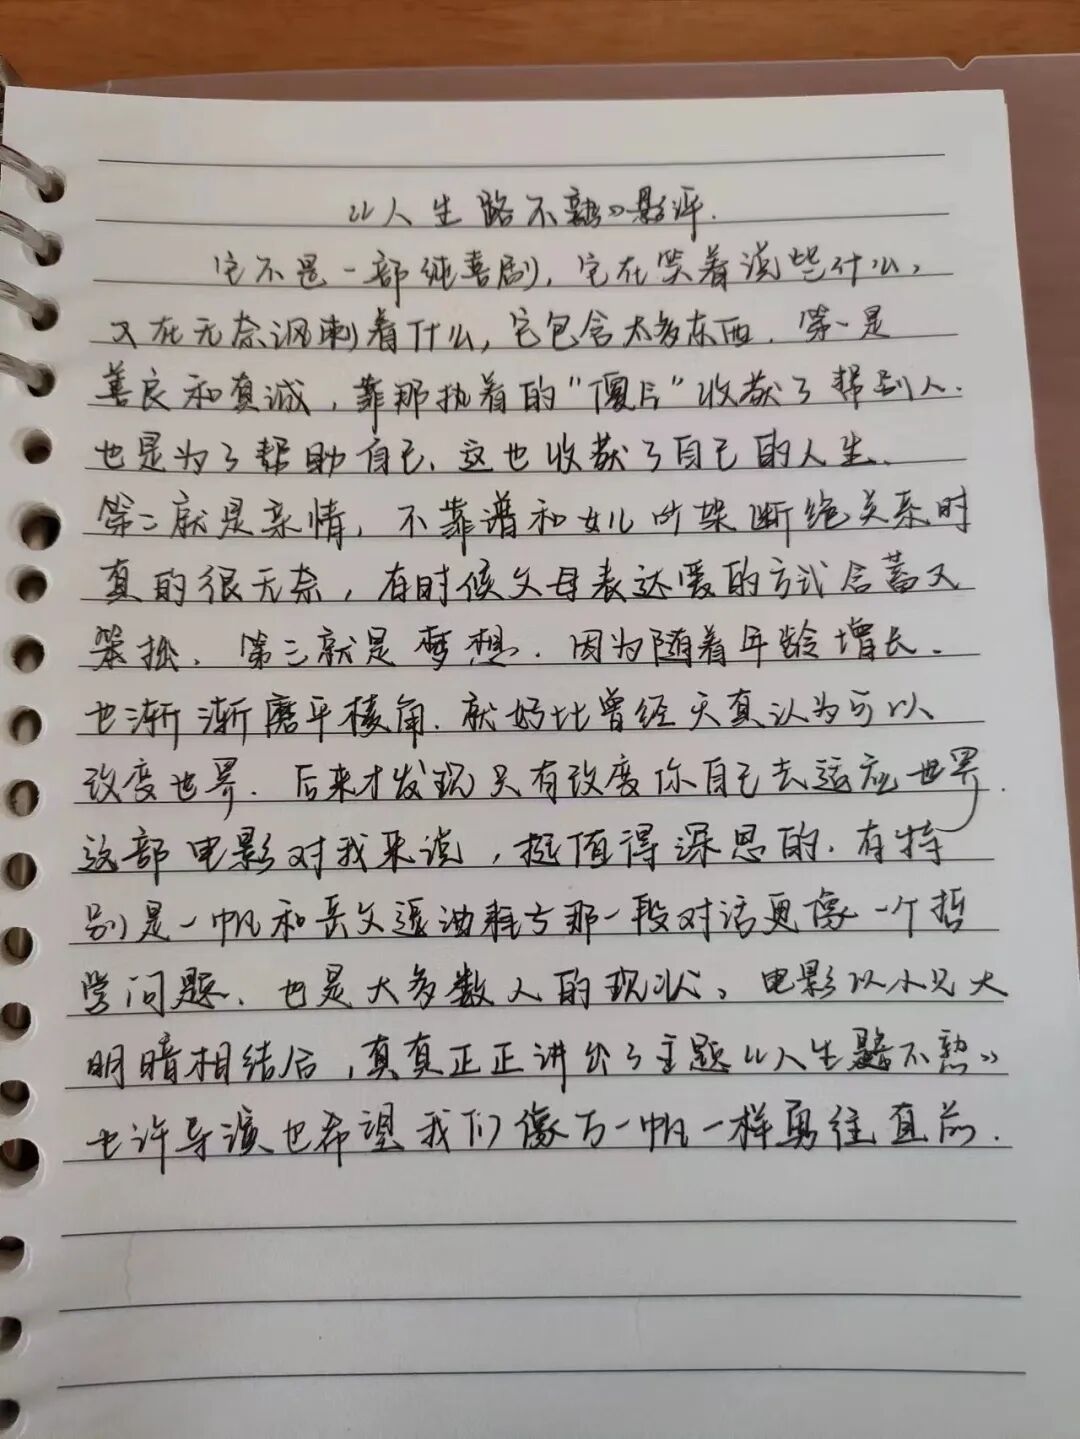 《人生路不熟》影评.
它不是一部纯喜剧, 它在笑着说些什么,
又在无奈讽刺着什么, 它包含太多东西. 第一是
善良和真诚, 靠那执着的“傻片”收获了帮别人.
也是为了帮助自己. 这也收获了自己的人生.
第二就是亲情, 不靠谱和女儿吵架断绝关系时
真的很无奈, 有时候父母表达爱的方式含蓄又
笨拙. 第三就是梦想. 因为随着年龄增长.
也渐渐磨平棱角. 就好比曾经天真认为可以
改变世界. 后来才发现只有改变你自己去适应世界.
这部电影对我来说, 挺值得深思的. 有特
别是一帆和岳父逗油耗子那一段对话更像一个哲
学问题. 也是大多数人的现状。电影以小见大
明暗相结合, 真真正正讲出了主题《人生路不熟》
也许导演也希望我们像万一帆一样勇往直前.